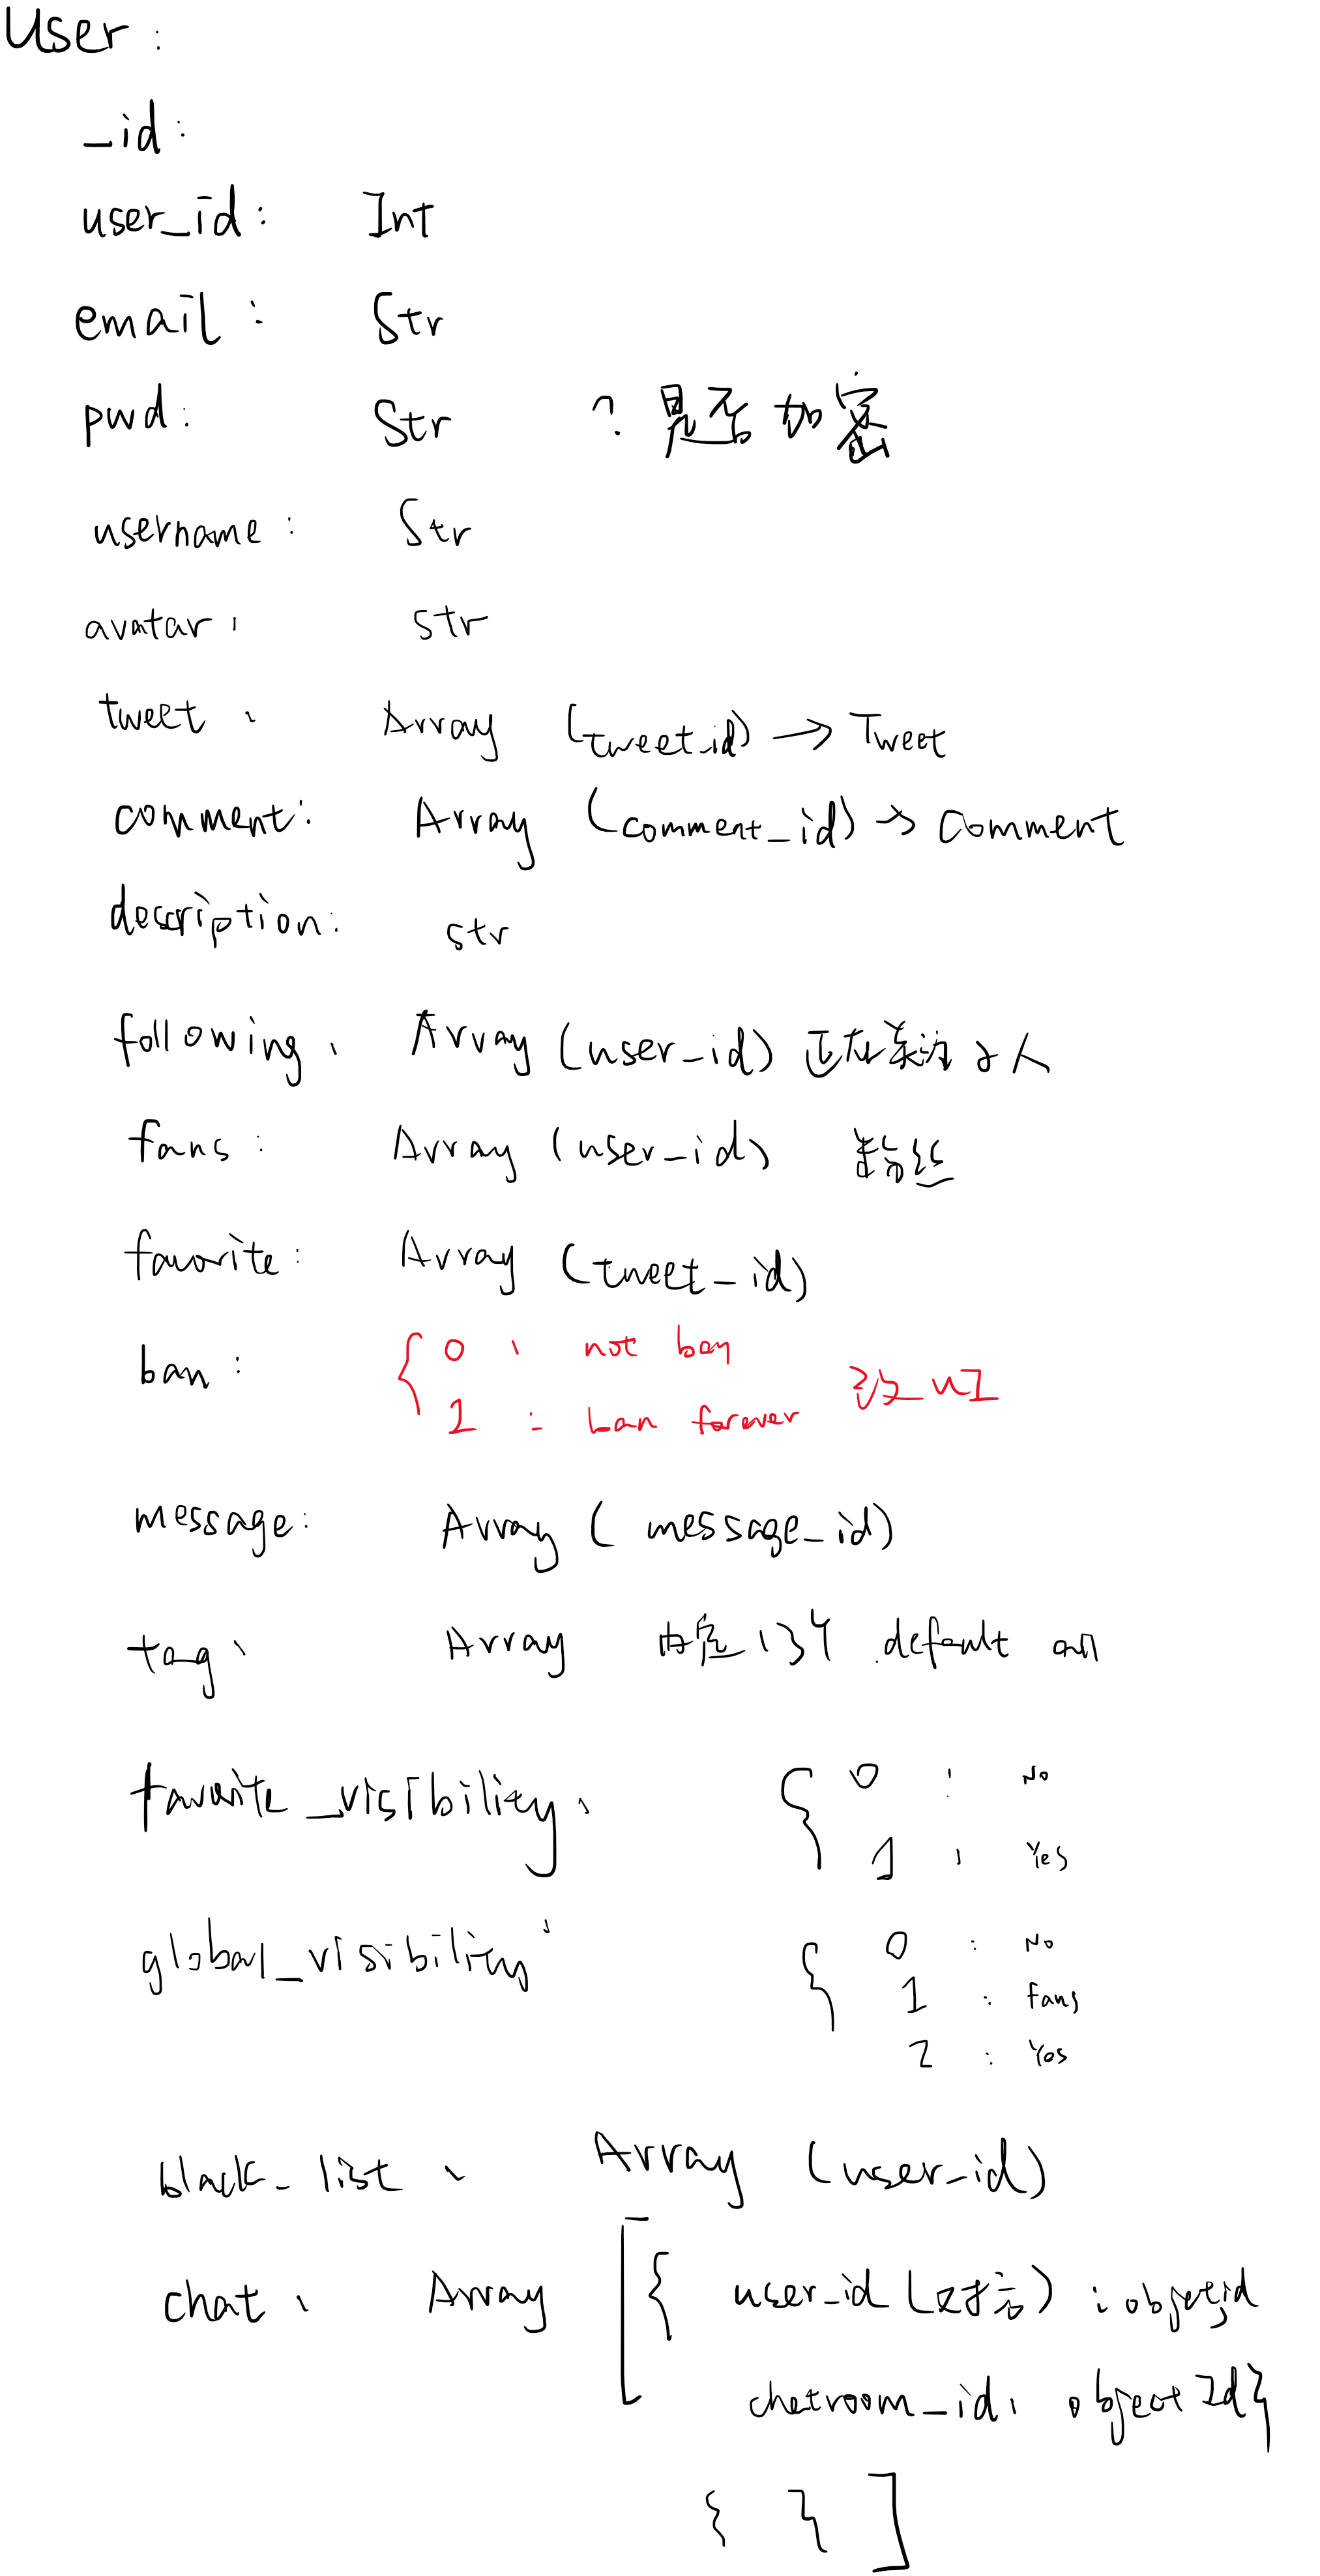 User :
_id :
user_id : Int
email : Str
pwd : Str ? 是否加密
username : Str
avatar : str
tweet : Array (tweet_id) → Tweet
comment : Array (comment_id) → comment
description : str
following : Array (user_id) 正在关注的人
fans : Array (user_id) 粉丝
favorite : Array (tweet_id)
ban : { 0 : not ban
1 : ban forever 没UI
message : Array ( message_id)
tag : Array 内定 default all
favorite_visibility : { 0 : No
1 : Yes
global_visibility : { 0 : No
1 : fans
2 : Yes
black_list : Array (user_id)
chat : Array [ { user_id (对方) : objectid
chatroom_id : objectId }
{ } ]